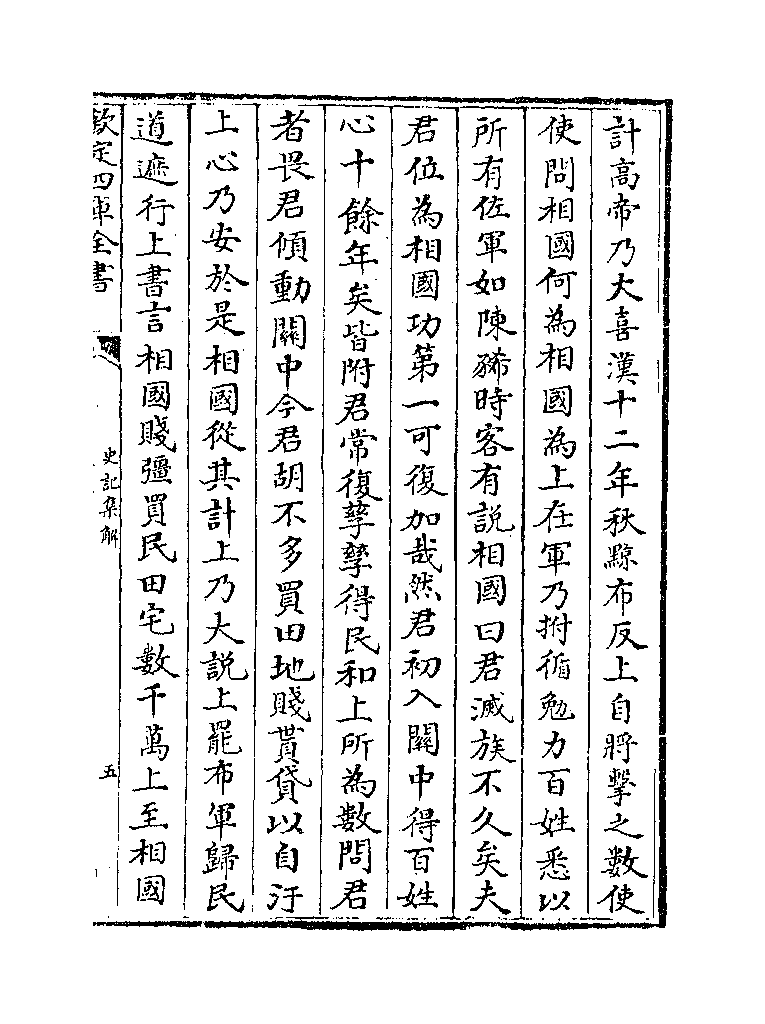 計高帝乃大喜漢十二年秋黥布反上自將擊之數使
使問相國何為相國為上在軍乃拊循勉力百姓悉以
所有佐軍如陳豨時客有說相國曰君滅族不久矣夫
君位為相國功第一可復加哉然君初入關中得百姓
心十餘年矣皆附君常復孳孳得民和上所為數問君
者畏君傾動關中今君胡不多買田地賤貰貸以自汙
上心乃安於是相國從其計上乃大説上罷布軍歸民
道遮行上書言相國賤彊買民田宅數千萬上至相國
欽定四庫全書
史記集解
五